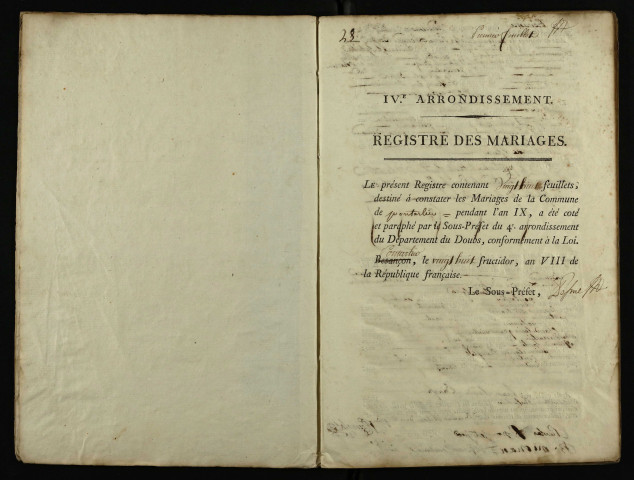 28 Premier feuillet
IV.E ARRONDISSEMENT.
REGISTRE DES MARIAGES.
LE présent Registre contenant vingt huit feuillets,
destiné à constater les Mariages de la Commune
de pontarlier = pendant l'an IX, a été coté
et paraphé par le Sous-Préfet du 4.e arrondissement
du Département du Doubs, conformément à la Loi.
Pontarlier
Besançon, le vingt huit fructidor, an VIII de
la République française.
Le Sous-Préfet,